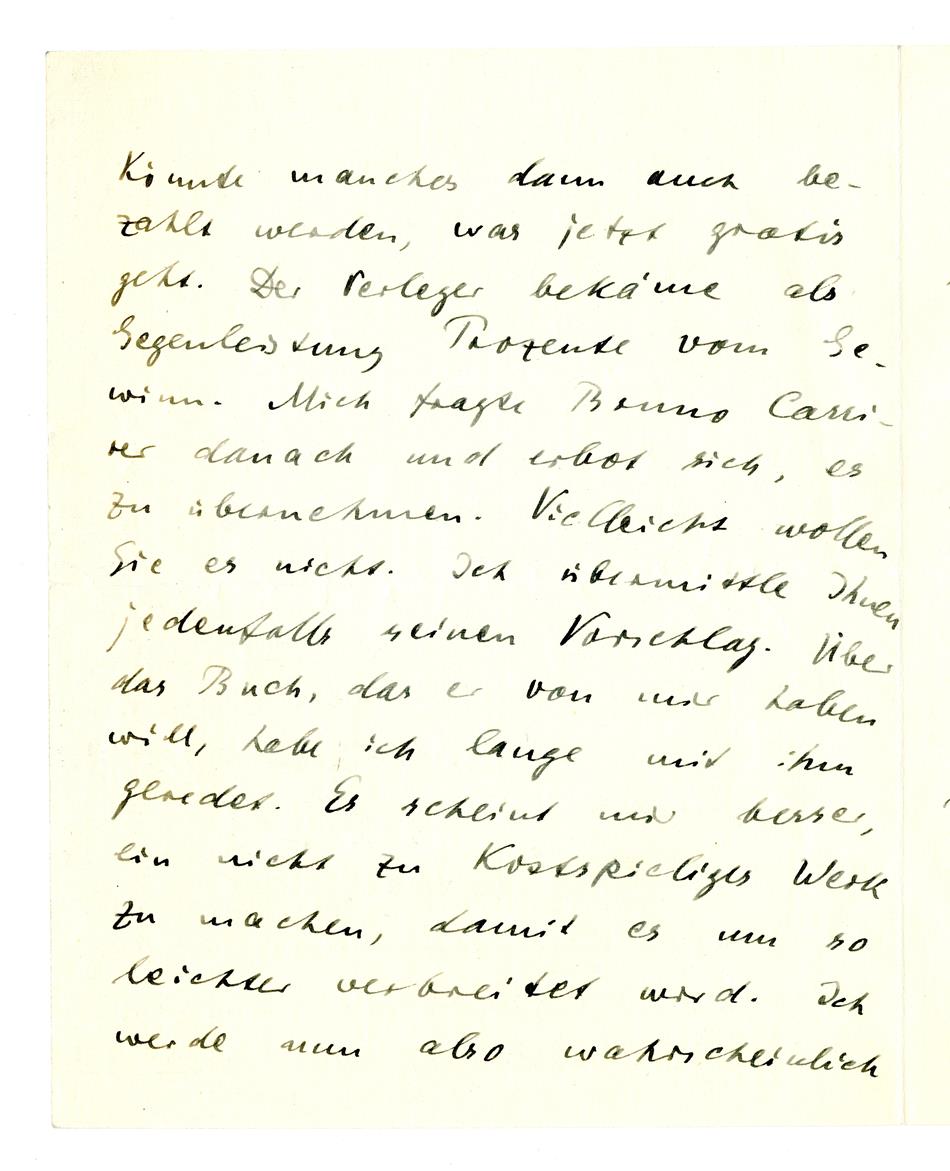 Könnte manches dann auch be-
zahlt werden, was jetzt gratis
geht. Der Verleger bekäme als
Gegenleistung Prozente vom Ge-
winn. Mich fragte Bruno Cassi-
rer danach und erbot sich, es
zu übernehmen. Vielleicht wollen
Sie es nicht. Ich übermittle Ihnen
jedenfalls seinen Vorschlag. Über
das Buch, das er von mir haben
will, habe ich lange mit ihm
geredet. Es scheint mir besser,
ein nicht zu Kostspieliges Werk
zu machen, damit es um so
leichter verbreitet wird. Ich
werde nun also wahrscheinlich